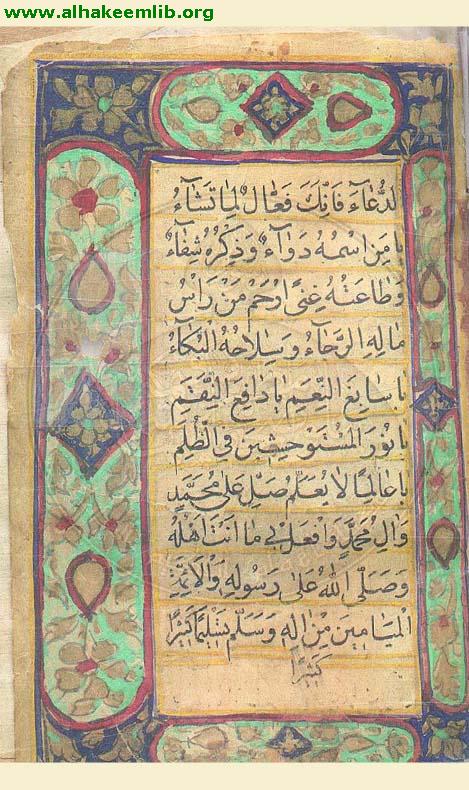 www.alhakeemlib.org
لدُّعَآءَ فَاِنَّكَ فَعَّالٌ لِمَا تَشَآءُ
يَا مَنِ اسْمُهُ دَوَآءٌ وَذِكْرُهُ شِفَآءٌ
وَطَاعَتُهُ غِنًى اِرْحَمْ مَنْ رَاْسُ
مَالِهِ الرَّجَآءُ وَسِلَاحُهُ الْبُكَآءُ
يَا سَابِغَ النِّعَمِ يَا دَافِعَ النِّقَمِ
يَا نُورَ الْمُسْتَوْحِشِينَ فِى الظُّلَمِ
يَا عَالِمًا لَا يُعَلَّمُ صَلِّ عَلَى مُحَمَّدٍ
وَآلِ مُحَمَّدٍ وَافْعَلْ بِى مَا اَنْتَ اَهْلُهُ
وَصَلَّى اللّٰهُ عَلَى رَسُولِهِ وَالْاَئِمَّةِ
الْمَيَامِينَ مِنْ اٰلِهِ وَسَلَّمَ تَسْلِيمًا كَثِيرًا
كَثِيرًا